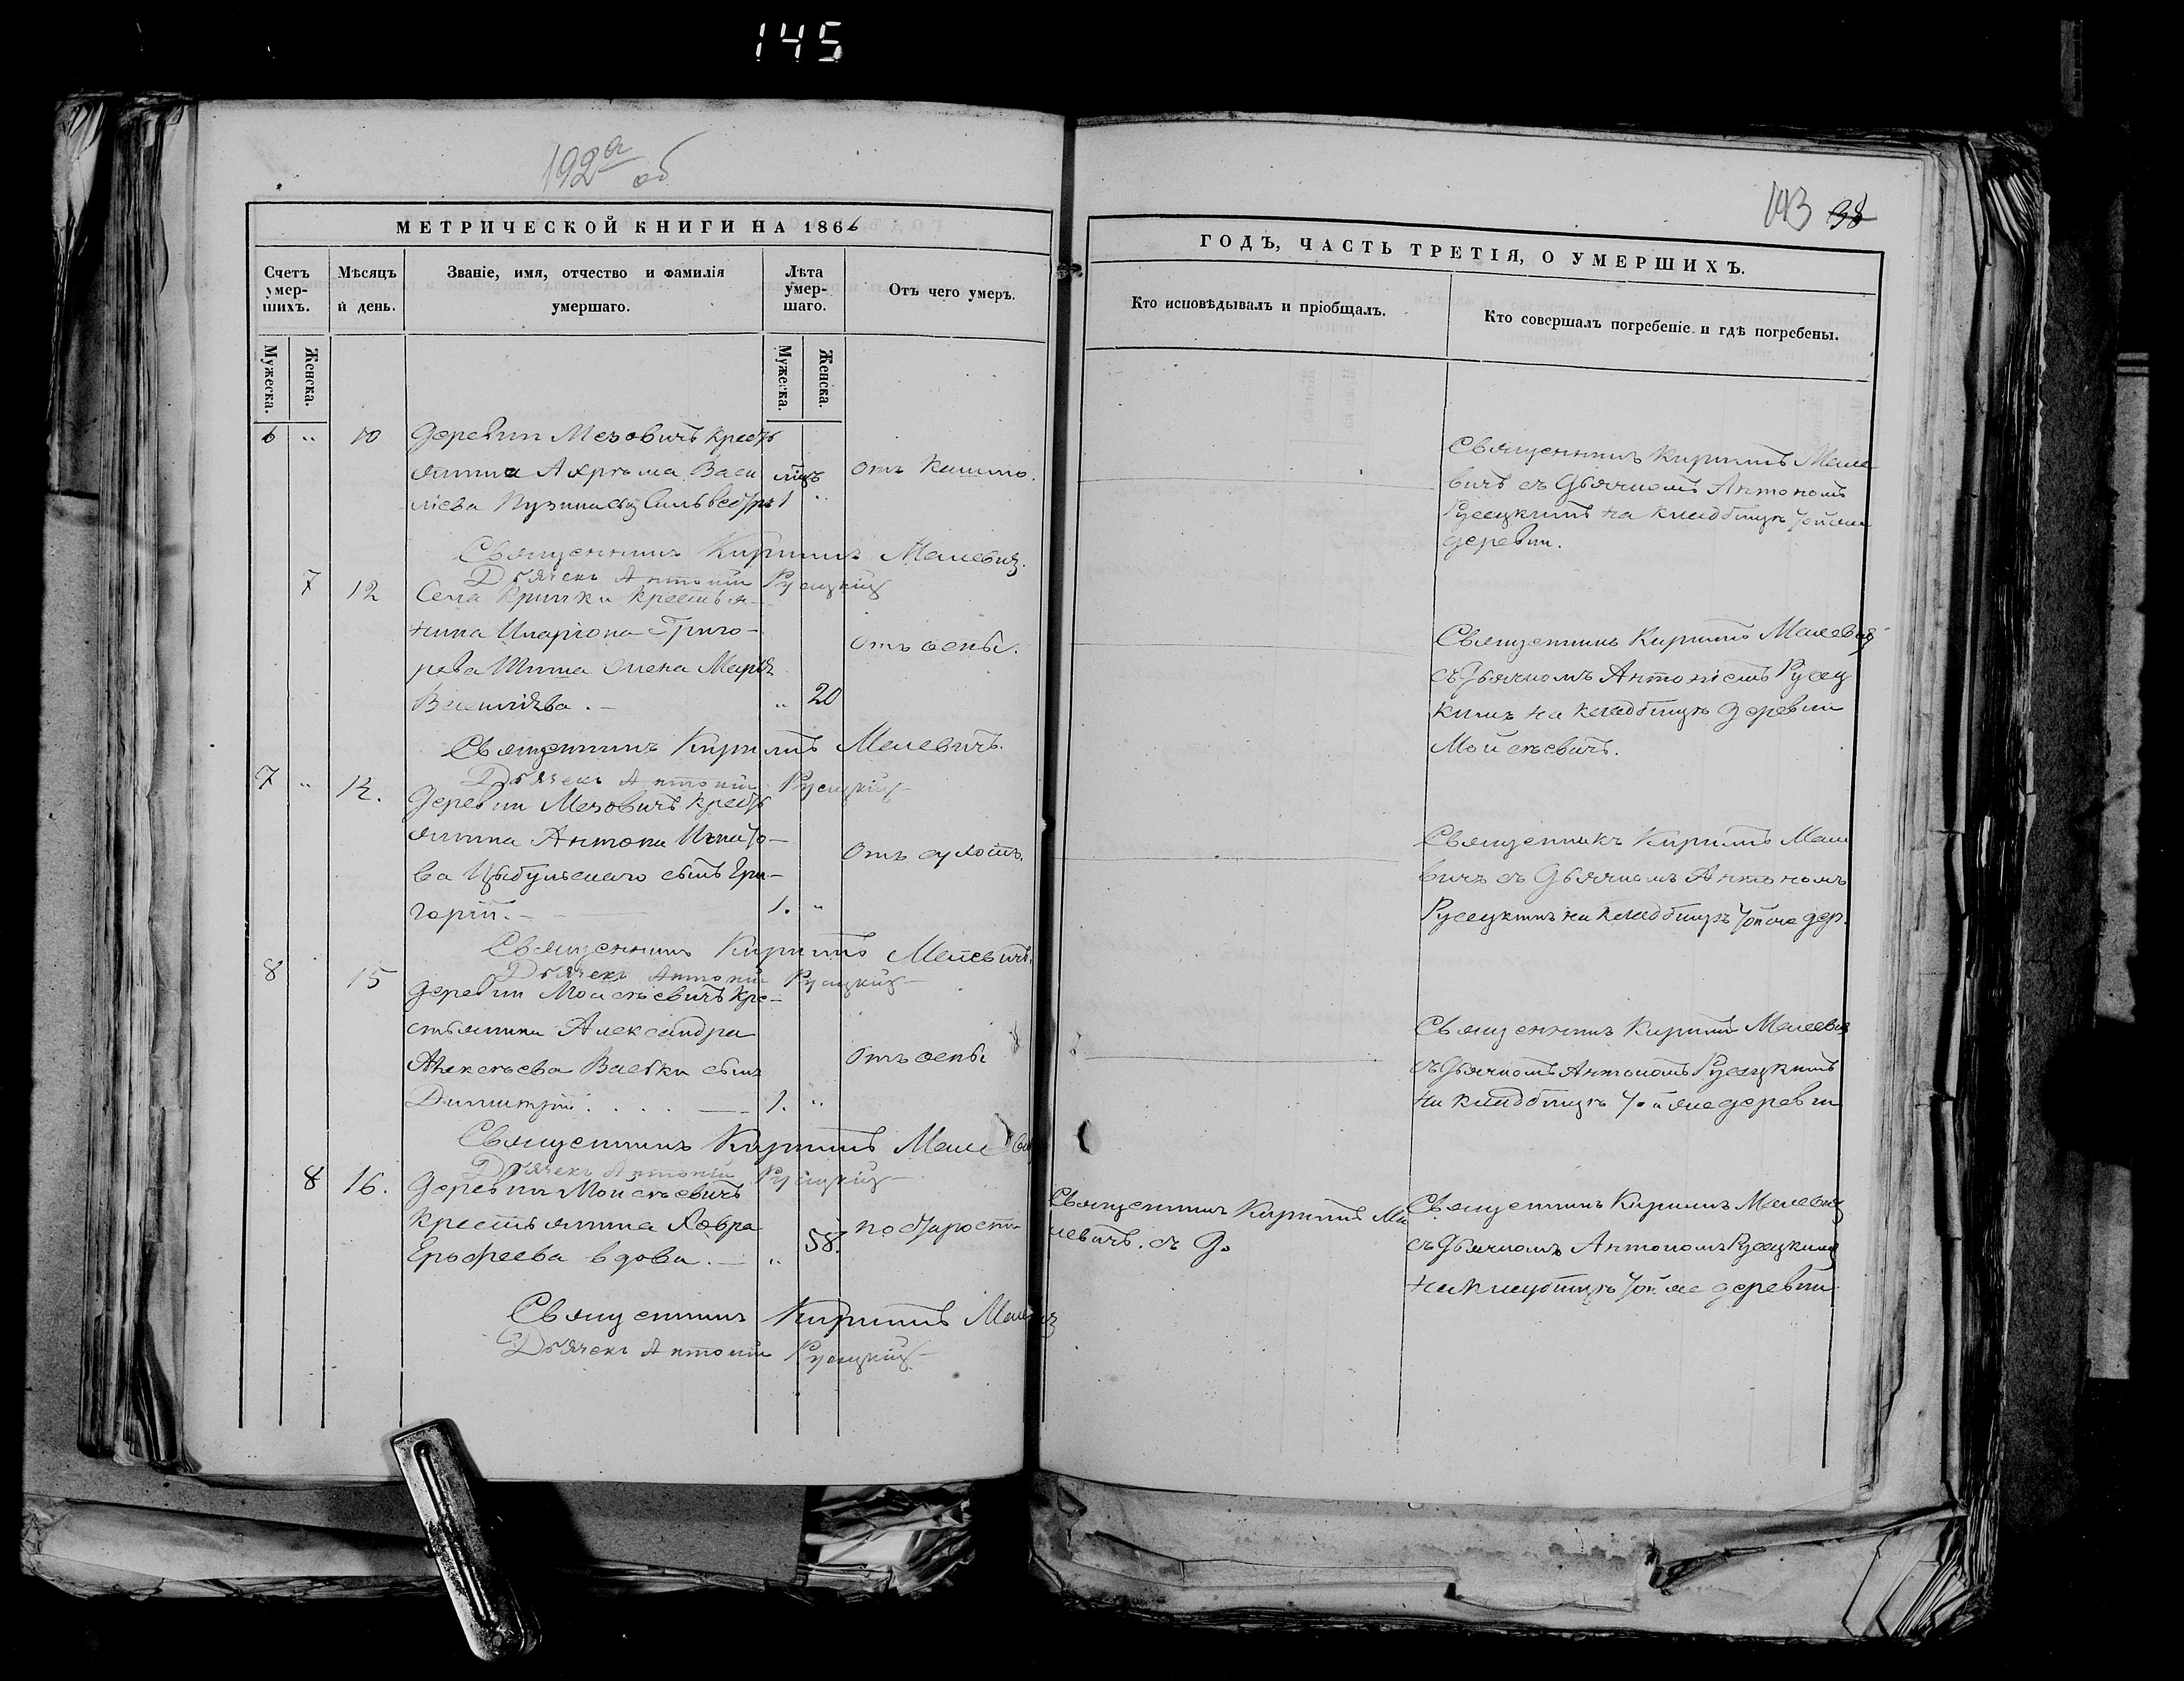 145
192а об
МЕТРИЧЕСКОЙ КНИГИ НА 1866
Счетъ умер-шихъ.
Мѣсяцъ и день.
Званіе, имя, отчество и фамилія умершаго.
Лѣта умер-шаго.
Отъ чего умеръ.
Мужеска.
Женска.
Мужеска.
Женска.
6 „ 10 Деревни Мезовичъ кресть
янина Ахрѣма Васи
ліева Кузина сынъ Сильвестръ 1 „
Отъ кашлю.
Священникъ Кириллъ Малевичъ.
Дьячекъ Антоній Русецкій
7 12 Села Кривки крестья-
нина Иларіона Григо-
рева жена Марія
20
Отъ оспы.
Священникъ Кириллъ Малевичъ.
Дьячекъ Антоній Русецкій
7 „ 12. Деревни Мезовичъ кресть
янина Антона Игнато-
ва Цыбульскаго сынъ Гри-
горій. 1. „
Отъ сухотъ.
Священникъ Кириллъ Малевичъ.
Дьячекъ Антоній Русецкій
8 15 Деревни Моисѣевичъ кре-
стьянина Александра
Алексѣева сынъ
Димитрій 1. „
Отъ оспы
Священникъ Кириллъ
Дьячекъ Антоній Русецкій
8 16. Деревни Мойсѣевичъ
крестьянина
Ерофеева вдова. „ 58.
по старости
Священникъ Кириллъ
Дьячекъ Антоній Русецкій
143 98
ГОДЪ, ЧАСТЬ ТРЕТІЯ, О УМЕРШИХЪ.
Кто исповѣдывалъ и пріобщалъ.
Кто совершалъ погребеніе и гдѣ погребены.
Священникъ Кириллъ Мале-
вичъ съ Дьячкомъ Антономъ
Русецкимъ на кладбищѣ тойже
деревни.
Священникъ Кириллъ Малевичъ
съ Дьячкомъ Антоніемъ Русец
кимъ на кладбищѣ деревни
Мойсѣевичъ.
Священникъ Кириллъ Мале
вичъ съ Дьячкомъ Антономъ
Русецкимъ на кладбищѣ тойже дер.
Священникъ Кириллъ Малевичъ
съ Дьячкомъ Антономъ Русецкимъ
на кладбищѣ тойже деревни
Священникъ Кириллъ Ма
левичъ. съ Д.
Священникъ Кириллъ Малевичъ
съ Дьячкомъ Антономъ Русецкимъ
на кладбищѣ тойже деревни